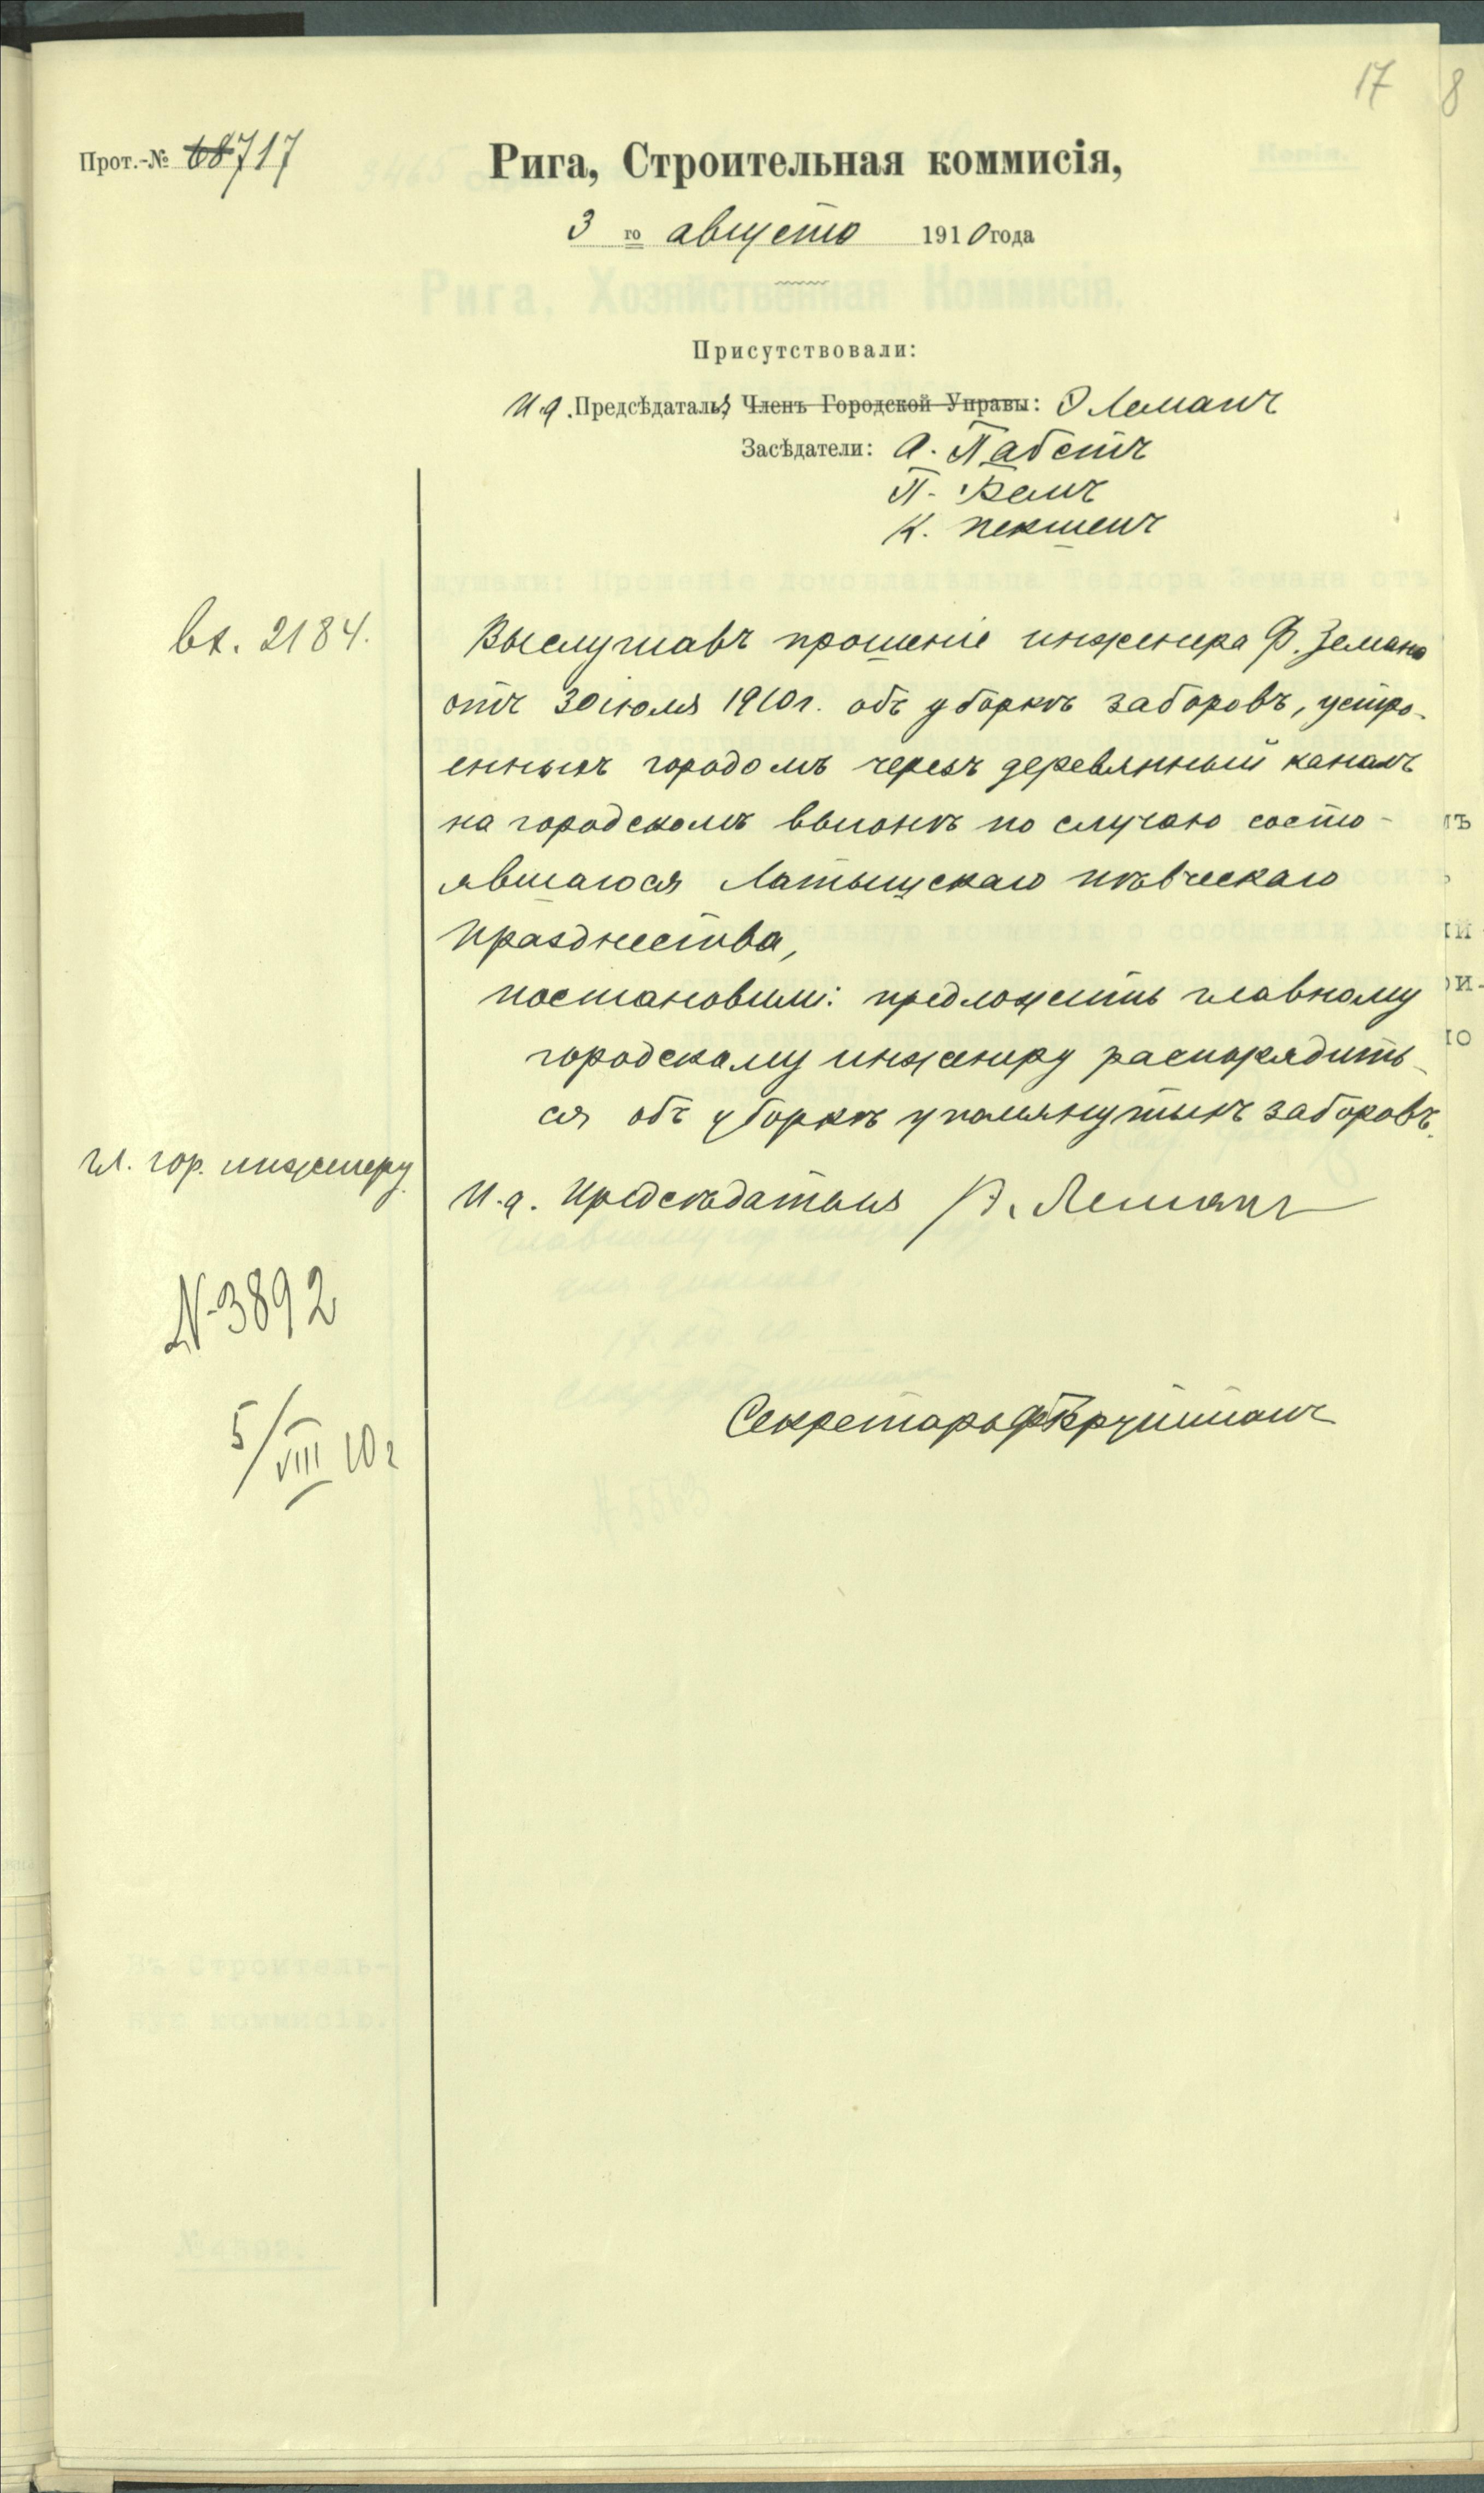 17
8
Прот.-№ 68 717
Рига, Строительная коммисія,
3 го августа 1910 года
Присутствовали:
И.д. Предсѣдателя, Членъ Городской Управы: Э Леманъ
Засѣдатели: А. Пабстъ
П. Кампъ
К. Пекшенъ
вх. 2184.
Выслушавъ прошеніе инженера Ф. Земана
отъ 30 іюля 1910 г. объ уборкѣ заборовъ, устро-
енныхъ городомъ черезъ деревянный каналъ
на городскомъ выгонѣ по случаю состо-
явшагося Латышскаго пѣвческаго
празднества,
постановили: предложить главному
городскому инженеру распорядить-
ся объ уборкѣ упомянутыхъ заборовъ.
Гл. гор. инженеру
И.д. предсѣдателя Э. Леманъ
№ 3892
5/VIII 10 г
Секретарь